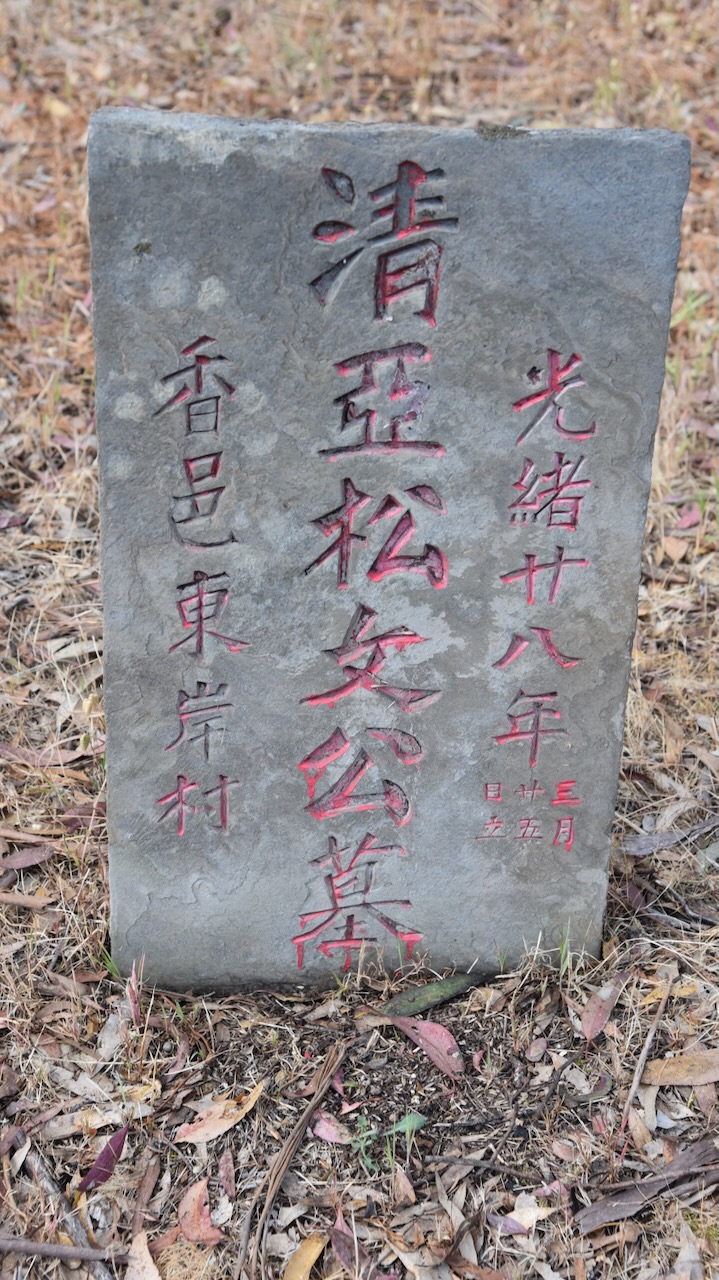 光緒廿八年
三月
廿五
日立
清亞松公墓
香邑東岸村